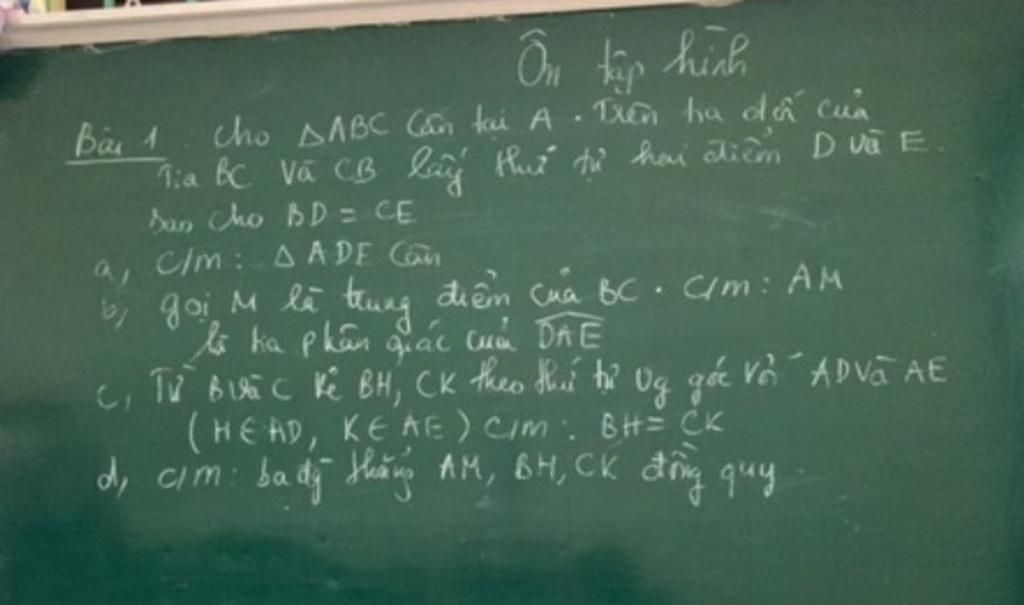 Ôn tập hình
Bài 1. Cho △ABC cân tại A. Trên tia đối của
Tia BC và CB lấy thứ tự hai điểm D và E.
sao cho BD = CE
a, C/m: △ADE Cân
b, gọi M là trung điểm của BC. C/m: AM
là tia phân giác của \widehat{DAE}
c, Từ B và C kẻ BH, CK theo thứ tự Vg góc với AD và AE
(H∈AD, K∈AE) C/m: BH = CK
d, c/m: ba đg thẳng AM, BH, CK đồng quy.